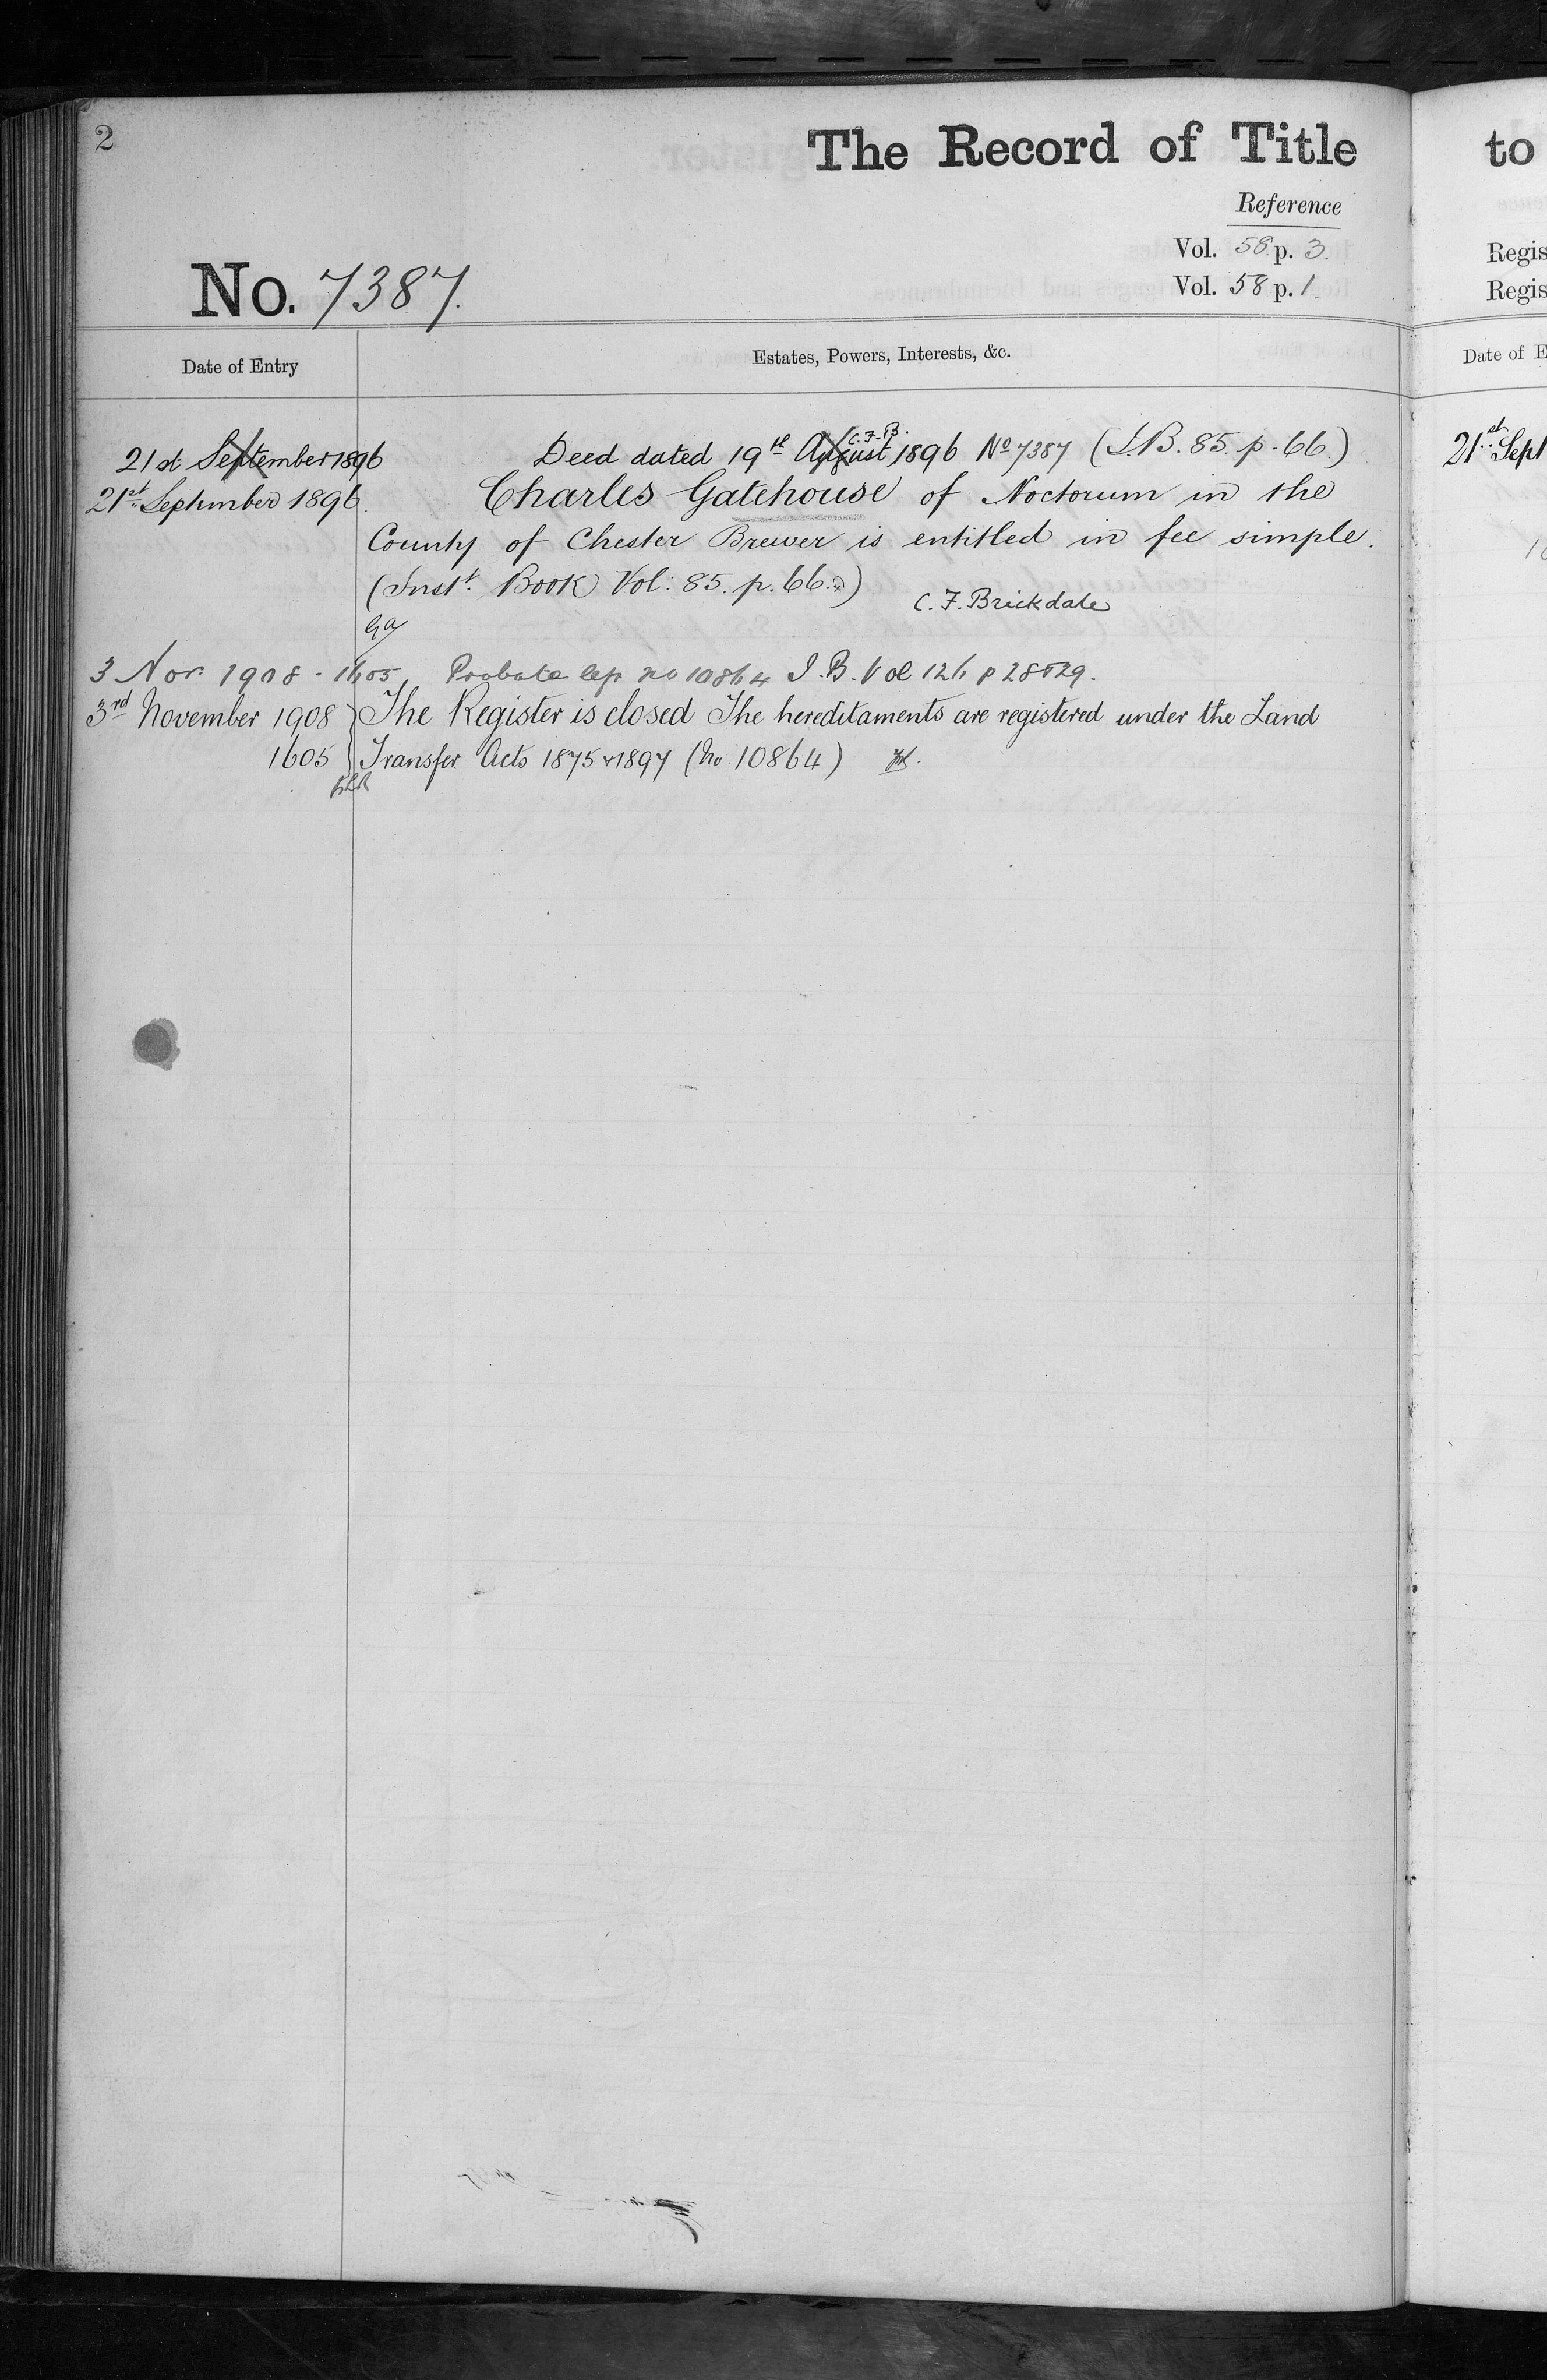 2
The Record of Title
Reference
Vol. 58 p. 3.
Vol. 58 p. 1.
No. 7387.
Date of Entry
Estates, Powers, Interests, &c.
21st September 1896
Deed dated 19th August 1896 No 7387 (I.B. 85. p. 66.)
C.F.B.
21st September 1896.
Charles Gatehouse of Noctorum in the
County of Chester Brewer is entitled in fee simple.
(Inst. Book Vol: 85. p. 66.)
C. F. Brickdale
3 Nov. 1908 - 1605 Probate dep no 10864 I.B. Vol 126 p 28 & 29.
3rd November 1908 } The Register is closed The hereditaments are registered under the Land
1605 } Transfer Acts 1875 & 1897 (No. 10864)
to
Regis
Regis
Date of E
21st Sept